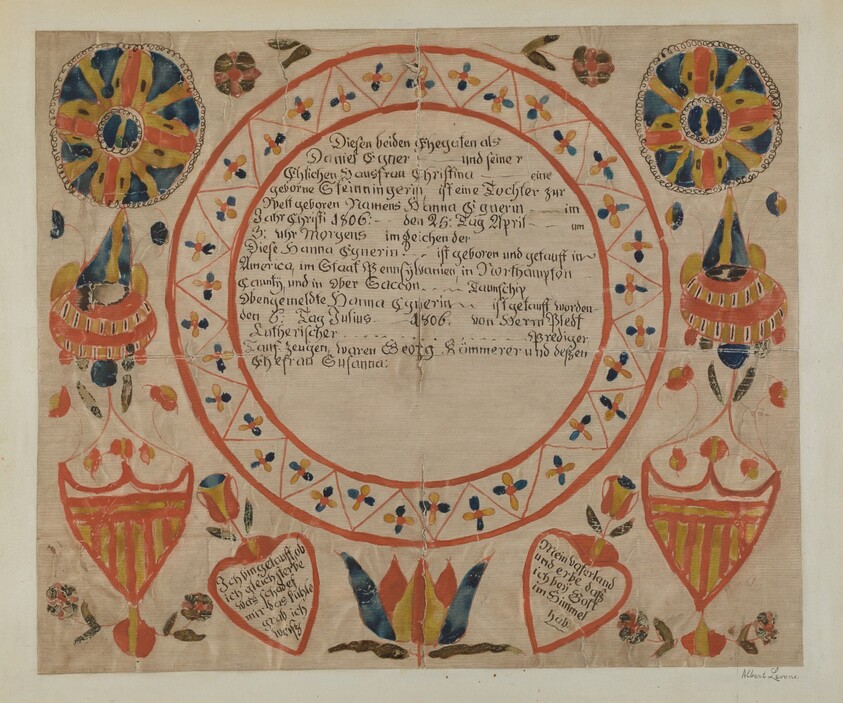 Diesen beiden Ehegaten als
Daniel Egner und seiner
Ehlichen Hausfrau Christina eine
geborne Steinningerin ist eine Tochter zur
Welt geboren Namens Hanna Egnerin im
Jahr Christi 1806: den 25: Tag April um
3: uhr Morgens im Zeichen der
Diese Hanna Egnerin ist geboren und getauft in
America, im Staat Pennsylvanien, in Northampton
Caunty, und in Ober Saccon Taunschip
Obengemeldte Hanna Egnerin ist getauft worden
den 6: Tag Julius 1806. von Herrn
Lutherischer Prediger
Tauf zeugen, waren Georg Kämmerer und deßen
Ehefrau Susanna:
Ich bin getauft, ob
ich gleich sterbe
was schadet
mir das kühle
grab ich
weiß
Mein Vaterland
und erbe daß
ich bey Gott
im Himmel
hab.
Albert Levone